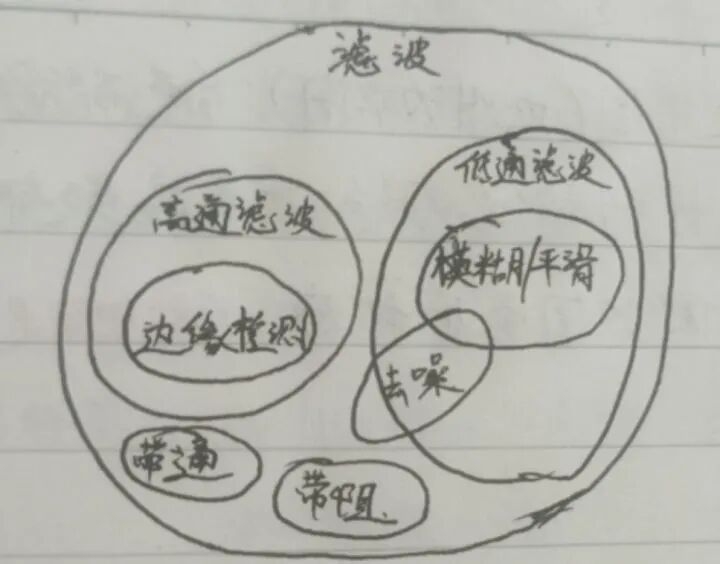 滤波
低通滤波
高通滤波
模糊/平滑
边缘检测
去噪
带通
带阻